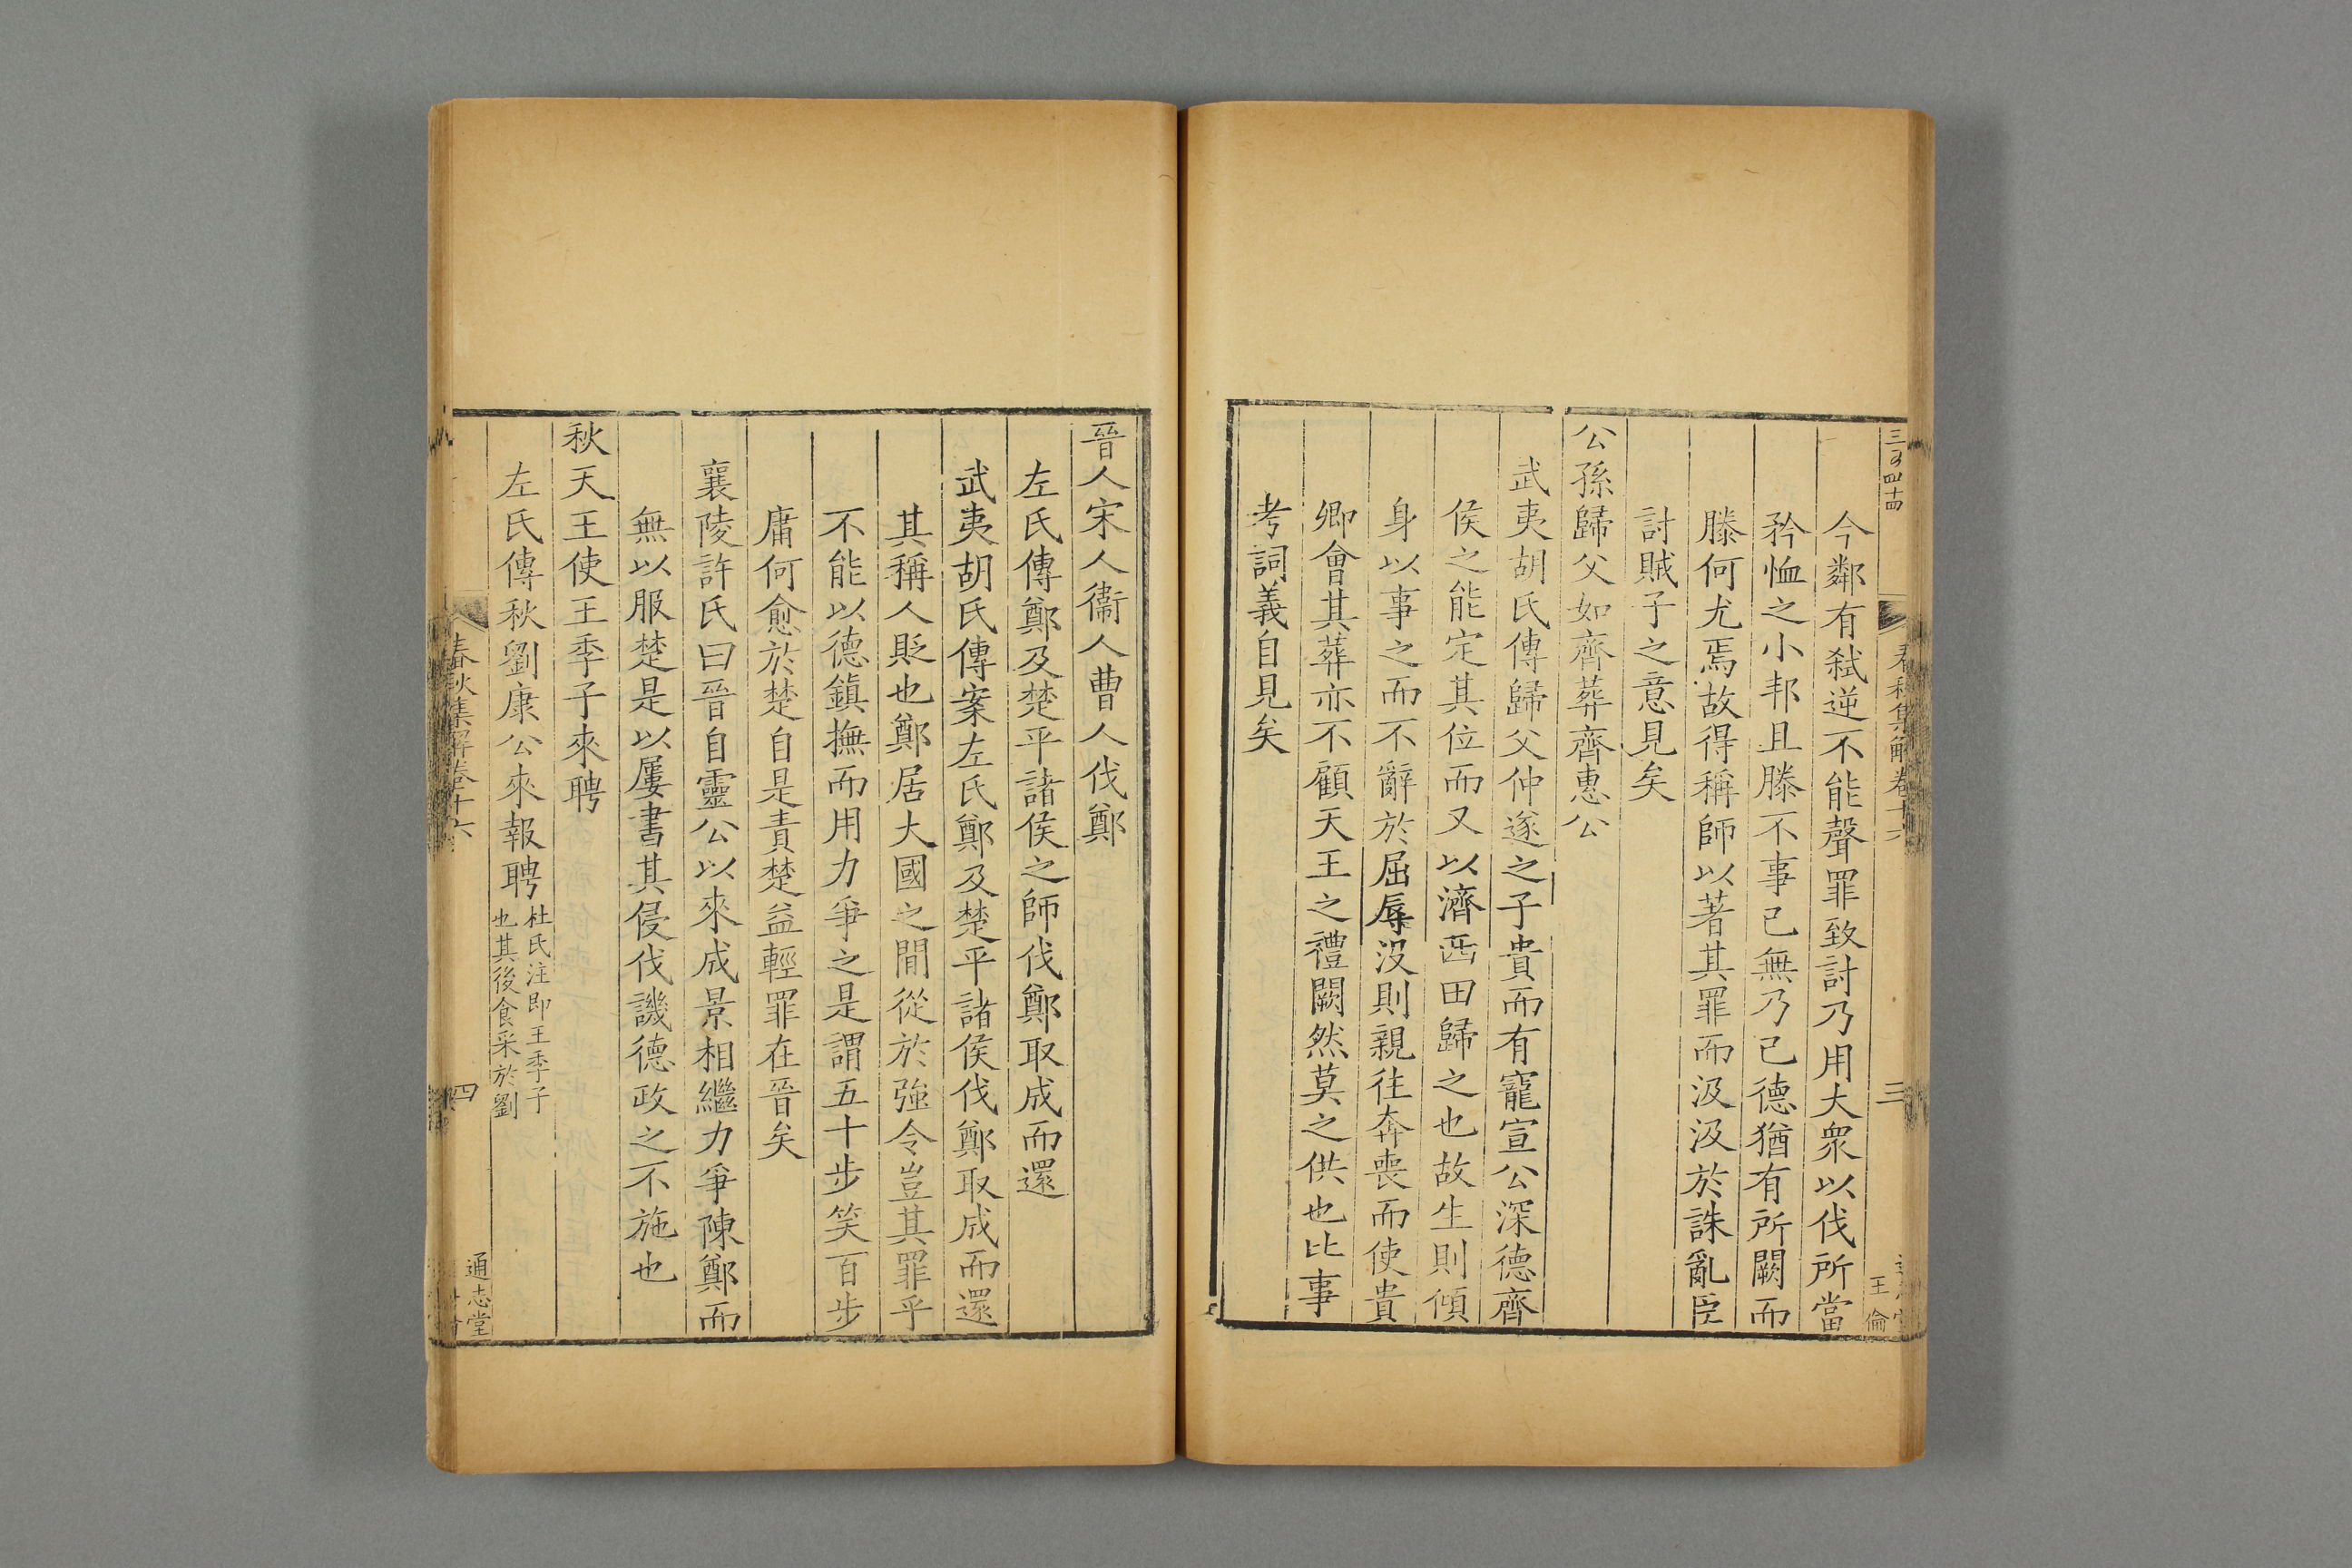 三百四十四
春秋集解卷十六
三
王倫
今鄰有弑逆不能聲罪致討乃用大衆以伐所當
矜恤之小邦且滕不事已無乃已德猶有所闕而
滕何尤焉故得稱師以著其罪而汲汲於誅亂臣
討賊子之意見矣
公孫歸父如齊葬齊惠公
武夷胡氏傳歸父仲遂之子貴而有寵宣公深德齊
侯之能定其位而又以濟西田歸之也故生則傾
身以事之而不辭於屈辱没則親往奔喪而使貴
卿會其葬亦不顧天王之禮闕然莫之供也比事
考詞義自見矣
晉人宋人衞人曹人伐鄭
左氏傳鄭及楚平諸侯之師伐鄭取成而還
武夷胡氏傳案左氏鄭及楚平諸侯伐鄭取成而還
其稱人貶也鄭居大國之間從於強令豈其罪乎
不能以德鎮撫而用力爭之是謂五十步笑百步
庸何愈於楚自是責楚益輕罪在晉矣
襄陵許氏曰晉自靈公以來成景相繼力爭陳鄭而
無以服楚是以屢書其侵伐譏德政之不施也
秋天王使王季子來聘
左氏傳秋劉康公來報聘杜氏注即王季子
也其後食采於劉
春秋集解卷十六
四
通志堂